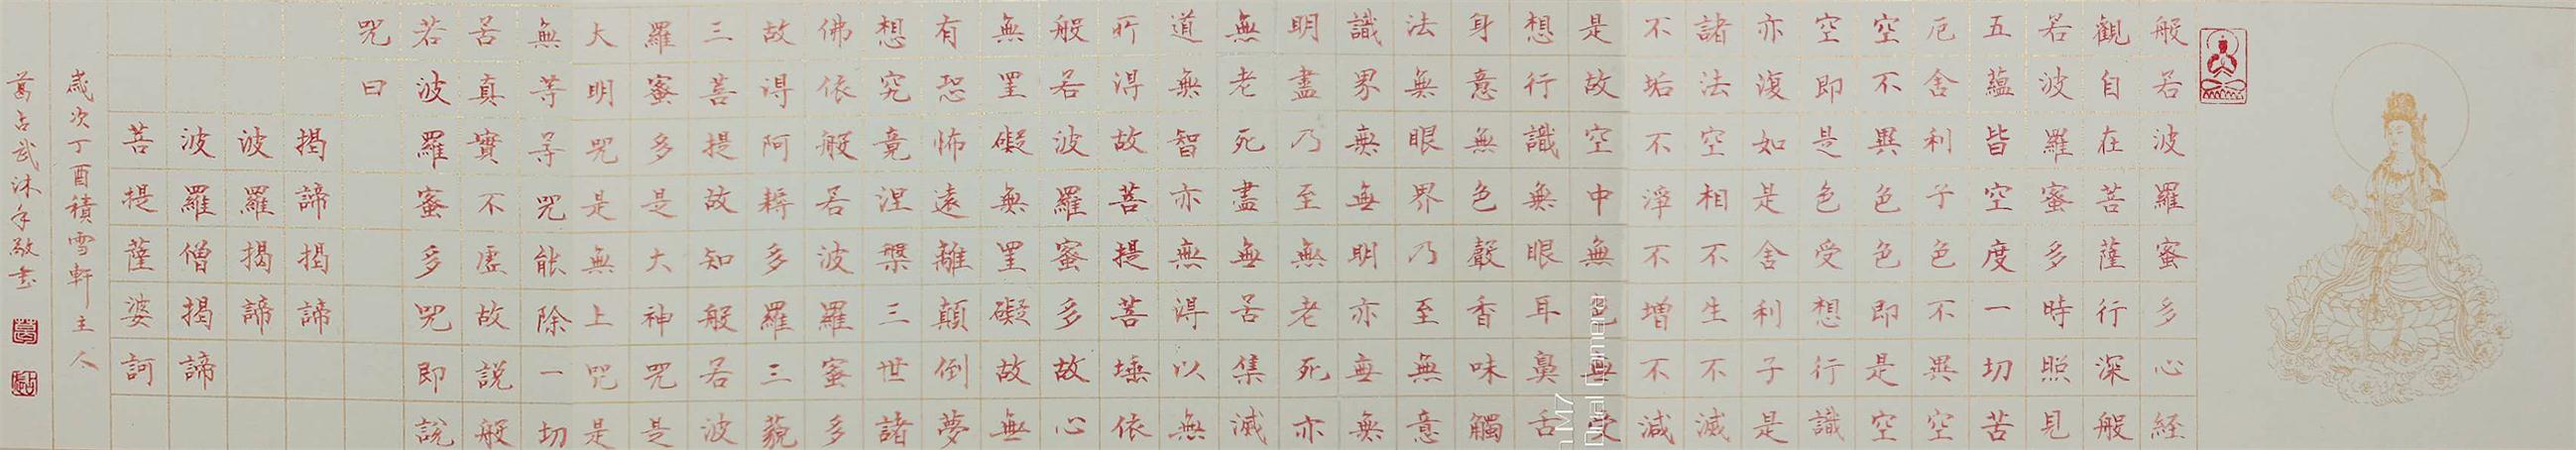 般若波羅蜜多心經
觀自在菩薩行深般
若波羅蜜多時照見
五蘊皆空度一切苦
厄舍利子色不異空
空不異色色即是空
空即是色受想行識
亦復如是舍利子是
諸法空相不生不滅
不垢不淨不增不減
是故空中無色無受
想行識無眼耳鼻舌
身意無色聲香味觸
法無眼界乃至無意
識界無無明亦無無
明盡乃至無老死亦
無老死盡無苦集滅
道無智亦無得以無
所得故菩提菩埵依
般若波羅蜜多故心
無罣礙無罣礙故無
有恐怖遠離顛倒夢
想究竟涅槃三世諸
佛依般若波羅蜜多
故得阿耨多羅三藐
三菩提故知般若波
羅蜜多是大神咒是
大明咒是無上咒是
無等等咒能除一切
苦真實不虛故說般
若波羅蜜多咒即說
咒曰
揭諦揭諦
波羅揭諦
波羅僧揭諦
菩提薩婆訶
歲次丁酉積雪軒主人
葛占武沐手敬書